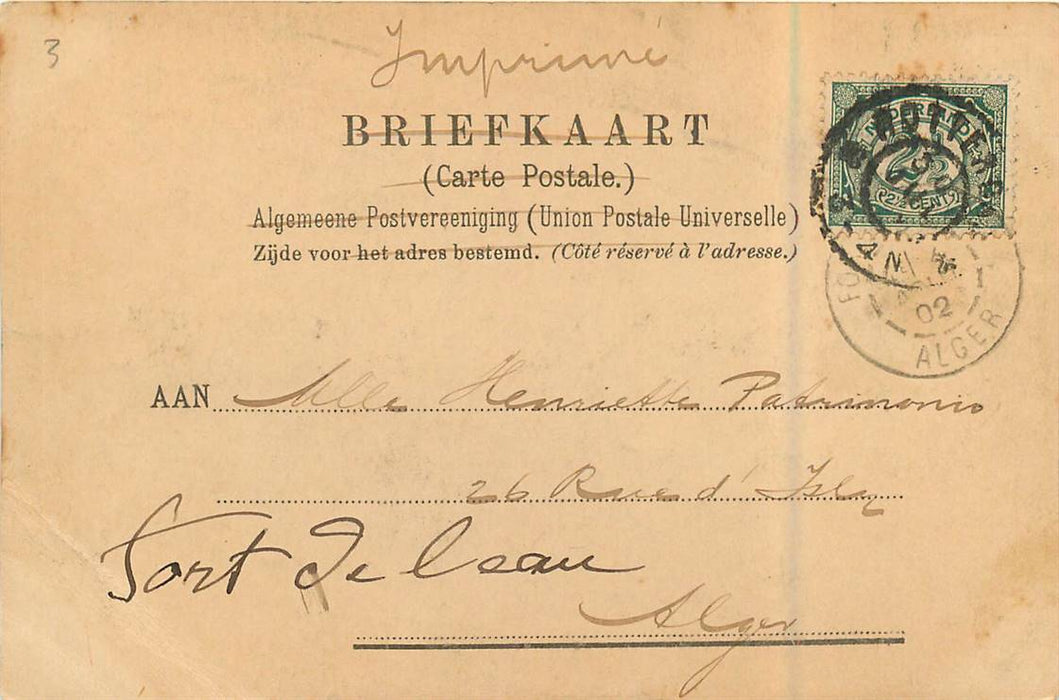 3
Imprimé
BRIEFKAART
(Carte Postale.)
Algemeene Postvereeniging (Union Postale Universelle)
Zijde voor het adres bestemd. (Côté réservé à l'adresse.)
NEDERLAND
2½
(2½ CENT)
ROTTERDAM
02
ALGER
AAN Mlle Henriette Patrimonio
26 Rue d'Isly
Fort de l'eau
Alger